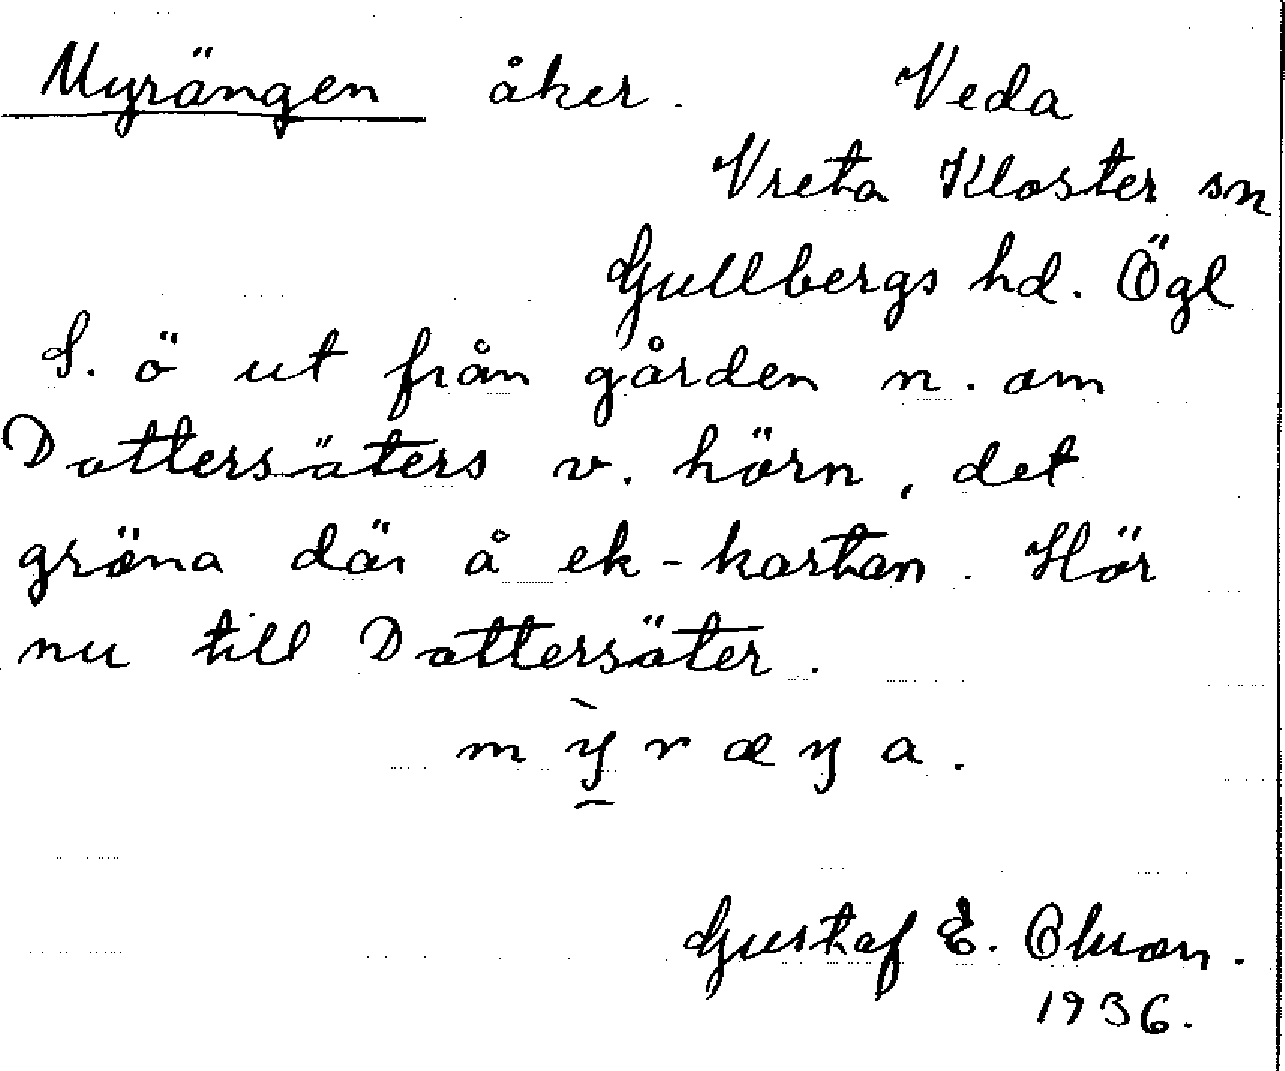 Myrängen åker. Veda
Vreta Kloster sn
Gullbergs hd. Ögl
S. ö ut från gården n. om
Dottersäters v. hörn, det
gröna där å ek-kartan. Hör
nu till Dottersäter.
mỳræŋa.
Gustaf E. Olsson.
1936.